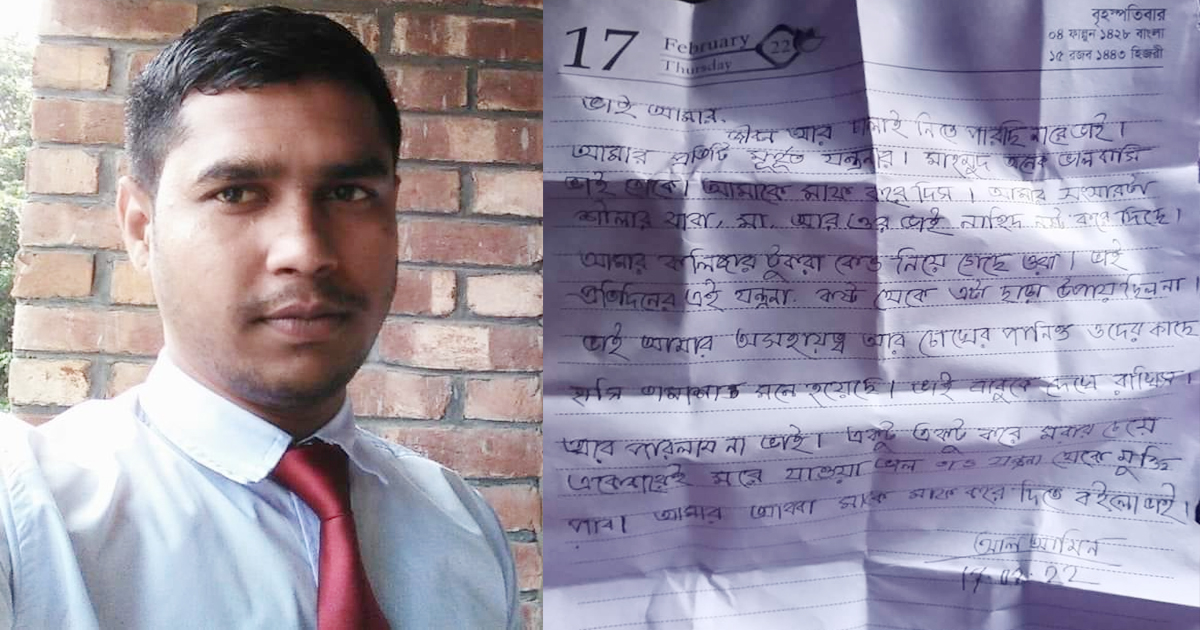 17 February 22
Thursday
বৃহস্পতিবার
০৪ ফাল্গুন ১৪২৮ বাংলা
১৫ রজব ১৪৪৩ হিজরী
ভাই আমার,
আর পারছি নারে ভাই।
আমার প্রতিটি মূহূর্ত যন্ত্রনার। মাহমুদ অনেক ভালবাসি
ভাই তোকে। আমাকে মাফ করে দিস। আমার সংসারটা
শীলার বাবা, মা, আর ওর ভাই নাহিদ নষ্ট করে দিছে।
আমার কলিজার টুকরা কেড়ে নিয়ে গেছে ওরা। ভাই
প্রতিদিনের এই যন্ত্রনা, কষ্ট থেকে এটা ছাড়া উপায় ছিল না
ভাই আমার অসহায়ত্ব আর চোখের পানিও ওদের কাছে
হাসি তামাশার মনে হয়েছে। ভাই বাবুকে দেখে রাখিস।
আর পারলাম না ভাই। একটু একটু করে মরার চেয়ে
একেবারেই মরে যাওয়া ভাল এত যন্ত্রনা থেকে মুক্তি
পাব। আমার আব্বা মাকে মাফ করে দিতে বইলো ভাই।
আল আমিন
17-02-22